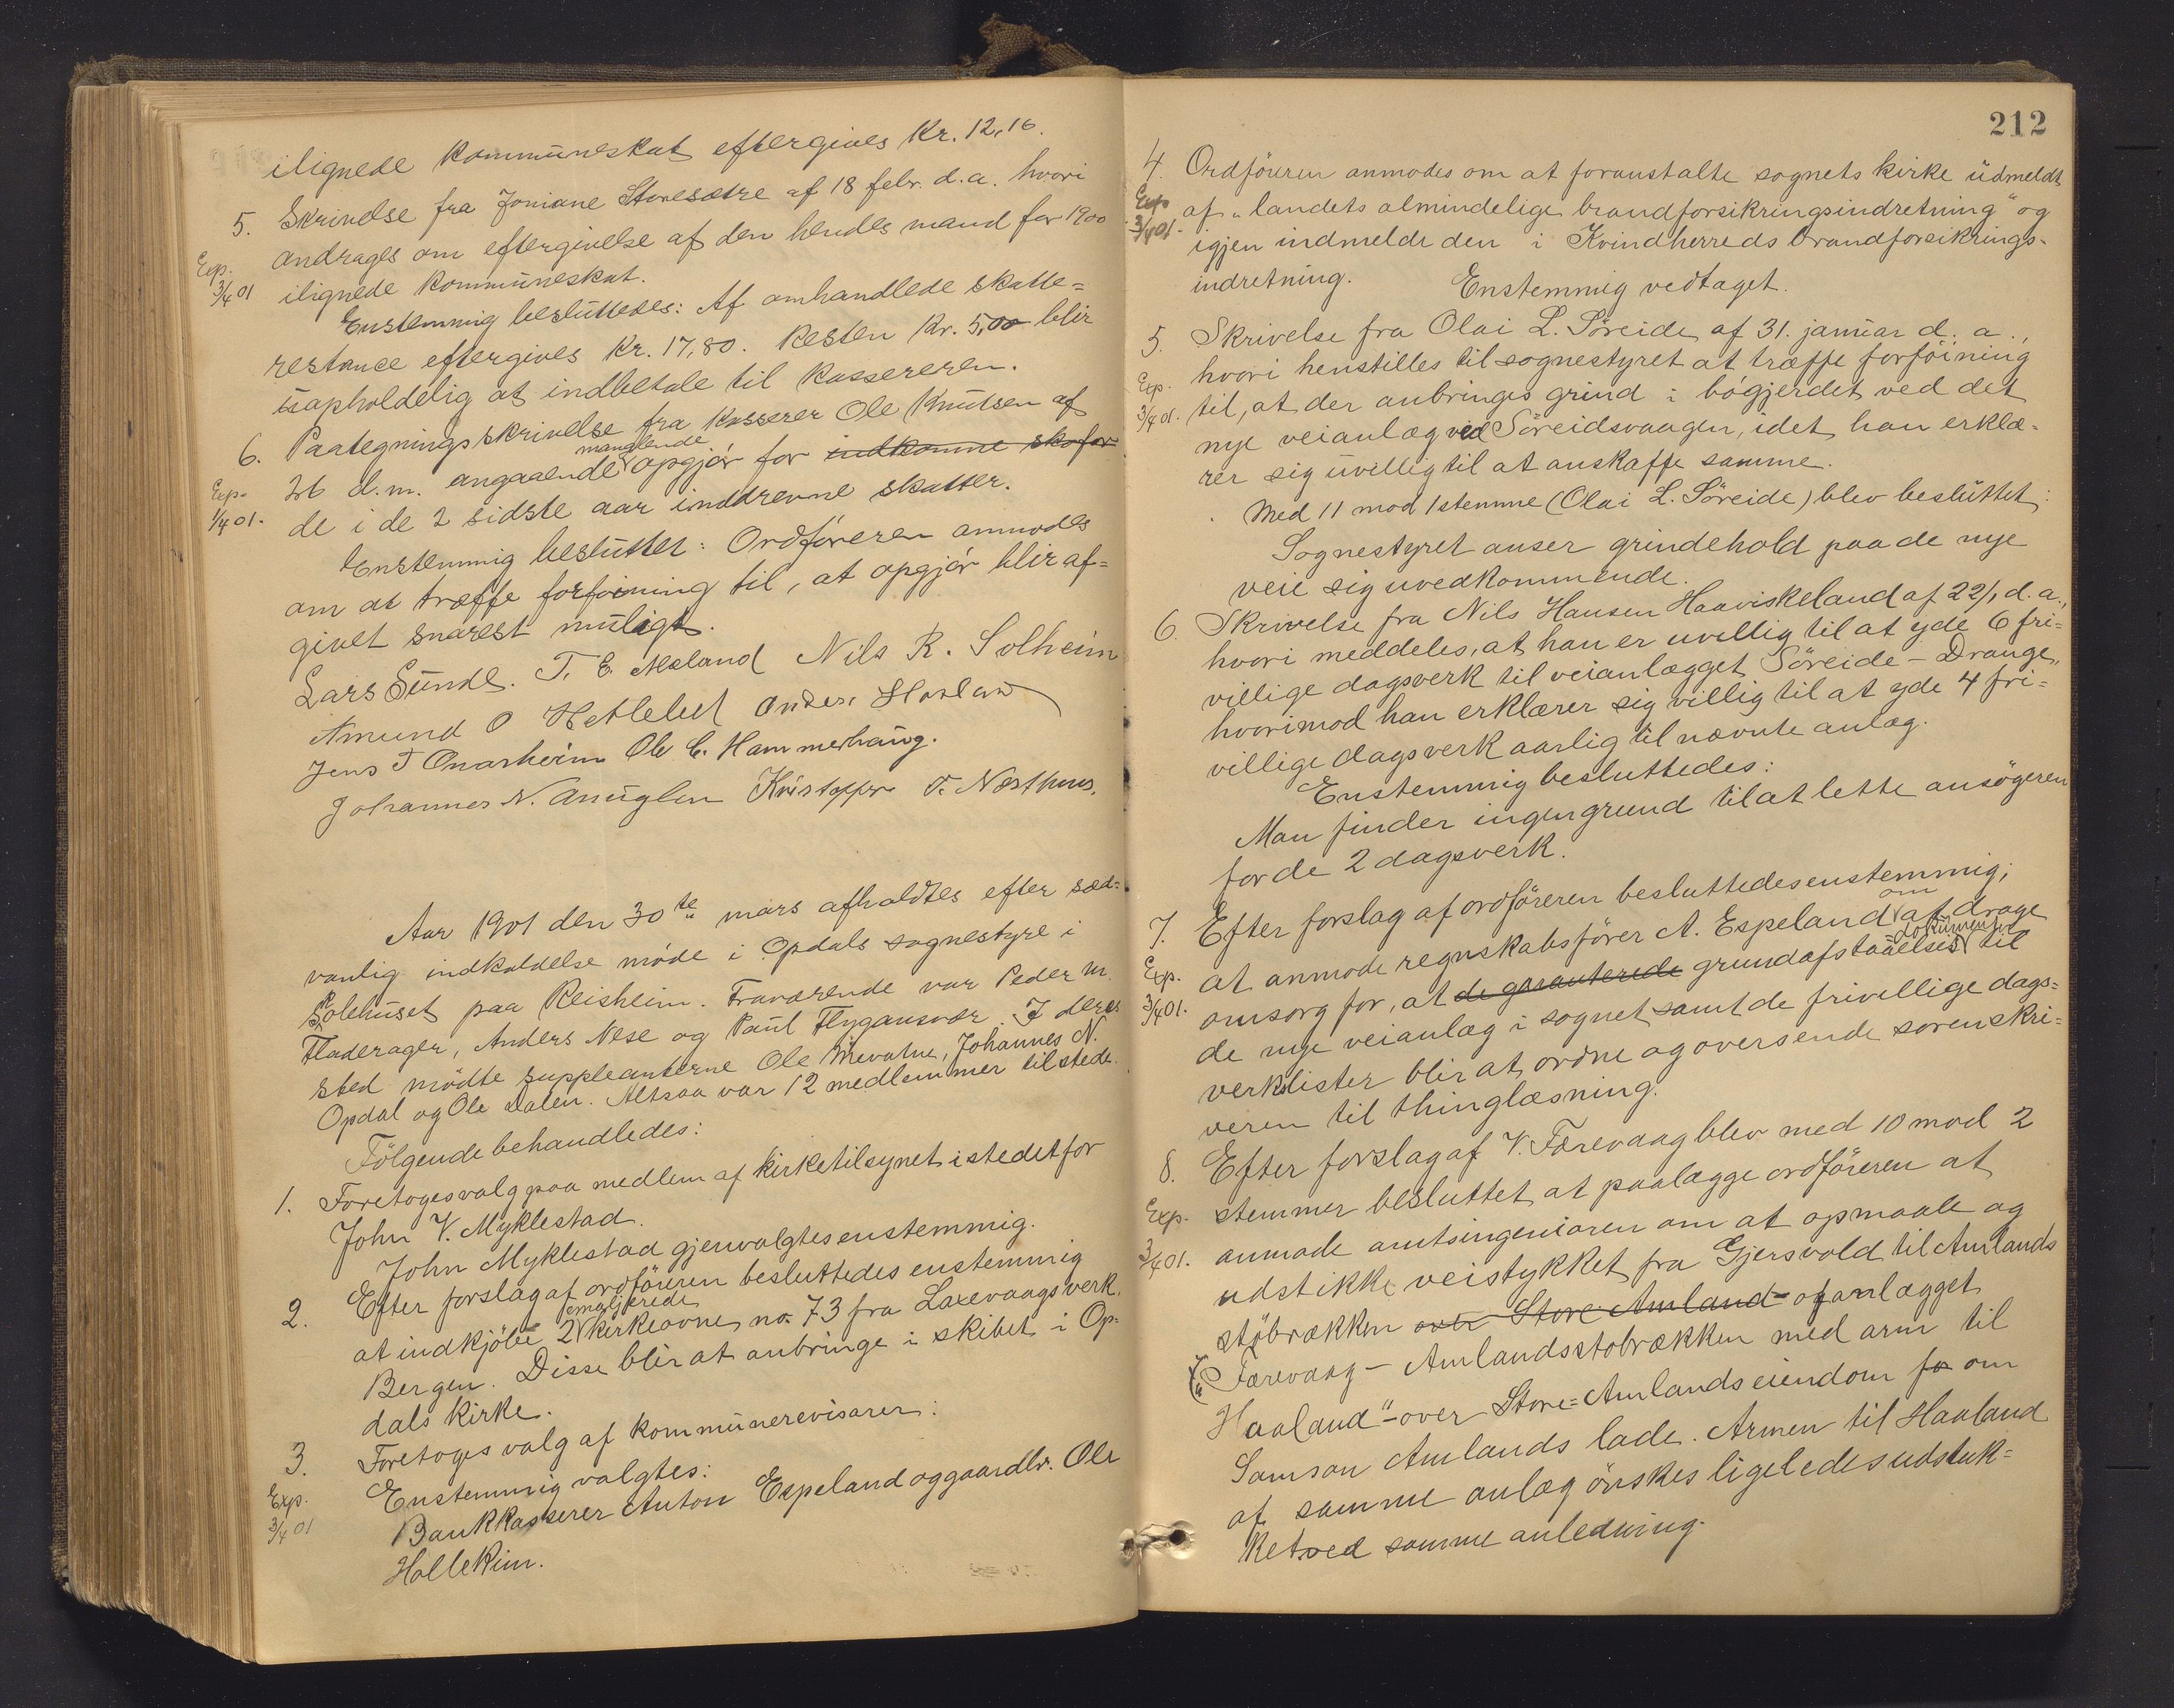 ilignede kommuneskat eftergives Kr. 12,16.
5. Skrivelse fra Joniane Storesætre af 18 febr. d.a. hvori
andrages om eftergivelse af den hendes mand for 1900
Exp. 3/4 01 ilignede kommuneskat.
Enstemmig besluttedes: Af omhandlede skatte=
restance eftergives Kr. 17,80. Resten Kr. 5,00 blir
uopholdelig at indbetale til kassereren.
6. Paategningsskrivelse fra kasserer Ole Knutsen af
manglende
Exp. 1/4 01. 26 d.m. angaaende opgjör for indkomne ska for
de i de 2 sidste aar inddrevne skatter.
Enstemmig besluttet: Ordföreren anmodes
om at træffe forföining til, at opgjör blir af=
givet snarest muligt.
Lars Sunde. T. E. Nesland Nils R. Solheim
Amund O Hetlelid Anders
Jens T Onarheim Ole C. Hammerhaug.
Johannes N. Anuglen Kristoffer T. Nærthus.
Aar 1901 den 30te mars afholdtes efter sæd=
vanlig indkaldelse möde i Opdals sognestyre i
Solehuset paa Reisheim. Fraværende var Peder M.
Fladerager, Anders Nese og Paul Flygansvær. I deres
sted mödte suppleanterne Ole Mevatne, Johannes N.
Opdal og Ole Dalen. Altsaa var 12 medlemmer tilstede.
Fölgende behandledes:
1. Foretoges valg paa medlem af kirketilsynet istedetfor
John V. Myklestad.
John Myklestad gjenvalgtes enstemmig.
2. Efter forslag af ordföreren besluttedes enstemmig
emaljerede
at indkjöbe 2 kirkeovne no. 73 fra Laxevaags verk,
Bergen. Disse blir at anbringe i skibet i Op=
dals kirke.
3. Foretoges valg af kommunerevisorer:
Exp. 3/4 01 Enstemmig valgtes:
Bankkasserer Anton Espeland og gaardbr. Ole
Hollekim.
212
4. Ordföreren anmodes om at foranstalte sognets kirke udmeldt
Exp 3/4 01. af "landets almindelige brandforsikringsindretning" og
igjen indmelde den i Kvindherreds brandforsikrings-
indretning. Enstemmig vedtaget.
5. Skrivelse fra Olai L. Söreide af 31. januar d. a.,
hvori henstilles til sognestyret at træffe forföining
Exp. 3/4 01. til, at der anbringes grind i bögjerdet ved det
nye veianlæg ved Söreidsvaagen, idet han erklæ-
rer sig uvillig til at anskaffe samme.
Med 11 mod 1 stemme (Olai L. Söreide) blev besluttet:
Sognestyret anser grindehold paa de nye
veie sig uvedkommende.
6. Skrivelse fra Nils Hansen Haaviskeland af 22/1 d. a.,
hvori meddeles, at han er uvillig til at yde 6 fri=
villige dagsverk til veianlægget Söreide - Drange,
hvorimod han erklærer sig villig til at yde 4 fri=
villige dagsverk aarlig til nævnte anlæg.
Enstemmig besluttedes:
Man finder ingen grund til at lette ansögeren
for de 2 dagsverk.
7. Efter forslag af ordföreren besluttedes enstemmig;
om
Exp. 3/4 01. at anmode regnskabsförer A. Espeland at drage
dokumenter
omsorg for, at de garanterede grundafstaaelses til
de nye veianlæg i sognet samt de frivillige dags=
verkslister blir at ordne og oversende sorenskri=
veren til thinglæsning.
8. Efter forslag af V. Færevaag blev med 10 mod 2
Exp. 3/4 01. stemmer besluttet at paalægge ordföreren at
anmode amtsingeniøren om at opmaale og
udstikke veistykket fra Gjersvold til Amlands
stöbrækken over Store Amland af anlægget
"Færevaag - Amlandsstobrækken med arm til
Haaland" - over Store=Amlands eiendom fo om
Samson Amlands lade. Armen til Haaland
af samme anlæg önskes ligeledes udstuk=
ket ved samme anledning.